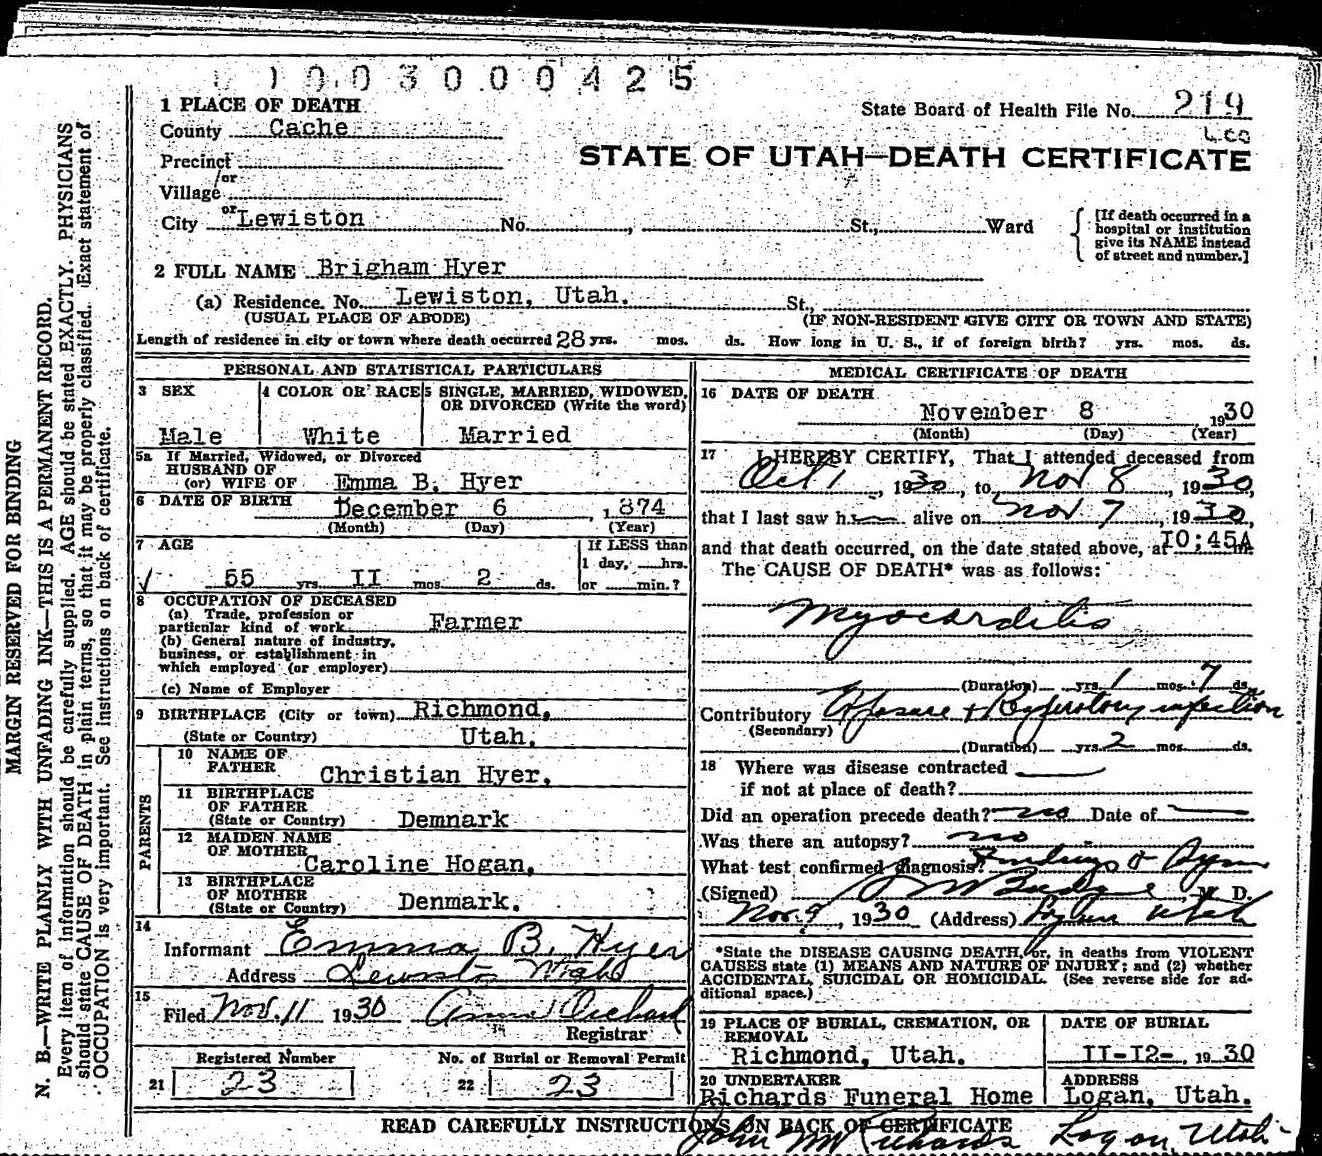 1003000425
1 PLACE OF DEATH
State Board of Health File No. 219
County Cache
STATE OF UTAH—DEATH CERTIFICATE
Precinct
or
Village
or
City Lewiston No. , St., Ward
[If death occurred in a
hospital or institution
give its NAME instead
of street and number.]
2 FULL NAME Brigham Hyer
(a) Residence. No. Lewiston, Utah. St.,
(USUAL PLACE OF ABODE) (IF NON-RESIDENT GIVE CITY OR TOWN AND STATE)
Length of residence in city or town where death occurred 28 yrs. mos. ds. How long in U. S., if of foreign birth? yrs. mos. ds.
PERSONAL AND STATISTICAL PARTICULARS
3 SEX
Male
4 COLOR OR RACE
White
5 SINGLE, MARRIED, WIDOWED,
OR DIVORCED (Write the word)
Married
5a If Married, Widowed, or Divorced
HUSBAND OF
(or) WIFE OF Emma B. Hyer
6 DATE OF BIRTH December 6 , 1874
(Month) (Day) (Year)
7 AGE
55 yrs. II mos. 2 ds.
If LESS than
1 day, hrs.
or min.?
8 OCCUPATION OF DECEASED
(a) Trade, profession or
particular kind of work Farmer
(b) General nature of industry,
business, or establishment in
which employed (or employer)
(c) Name of Employer
9 BIRTHPLACE (City or town) Richmond,
(State or Country) Utah.
PARENTS
10 NAME OF
FATHER Christian Hyer.
11 BIRTHPLACE
OF FATHER
(State or Country) Demnark
12 MAIDEN NAME
OF MOTHER Caroline Hogan.
13 BIRTHPLACE
OF MOTHER
(State or Country) Denmark.
14
Informant Emma B. Hyer
Address Lewiston Utah
15
Filed Nov. 11 1930 Anna
Registrar
Registered Number
21 23
No. of Burial or Removal Permit
22 23
MEDICAL CERTIFICATE OF DEATH
16 DATE OF DEATH
November 8 1930
(Month) (Day) (Year)
17 I HEREBY CERTIFY, That I attended deceased from
Oct 1 , 1930, to Nov 8 , 1930,
that I last saw h alive on Nov 7 , 1930,
and that death occurred, on the date stated above, at I0;45A m.
The CAUSE OF DEATH* was as follows:
Myocarditis
(Duration) yrs. 1 mos. 7 ds.
Contributory Exposure + Respiratory infection
(Secondary)
(Duration) yrs. 2 mos. ds.
18 Where was disease contracted
if not at place of death?
Did an operation precede death? no Date of
Was there an autopsy? no
What test confirmed diagnosis?
(Signed) Budge M. D.
Nov. 9, 1930 (Address) Logan Utah
*State the DISEASE CAUSING DEATH, or, in deaths from VIOLENT
CAUSES state (1) MEANS AND NATURE OF INJURY; and (2) whether
ACCIDENTAL, SUICIDAL OR HOMICIDAL. (See reverse side for ad-
ditional space.)
19 PLACE OF BURIAL, CREMATION, OR
REMOVAL
Richmond, Utah.
DATE OF BURIAL
II-I2- , 1930
20 UNDERTAKER
Richards Funeral Home
ADDRESS
Logan, Utah.
READ CAREFULLY INSTRUCTIONS ON BACK OF CERTIFICATE
John M Richards Logan, Utah
MARGIN RESERVED FOR BINDING
N. B.—WRITE PLAINLY WITH UNFADING INK—THIS IS A PERMANENT RECORD.
Every item of information should be carefully supplied. AGE should be stated EXACTLY. PHYSICIANS
should state CAUSE OF DEATH in plain terms, so that it may be properly classified. Exact statement of
OCCUPATION is very important. See instructions on back of certificate.